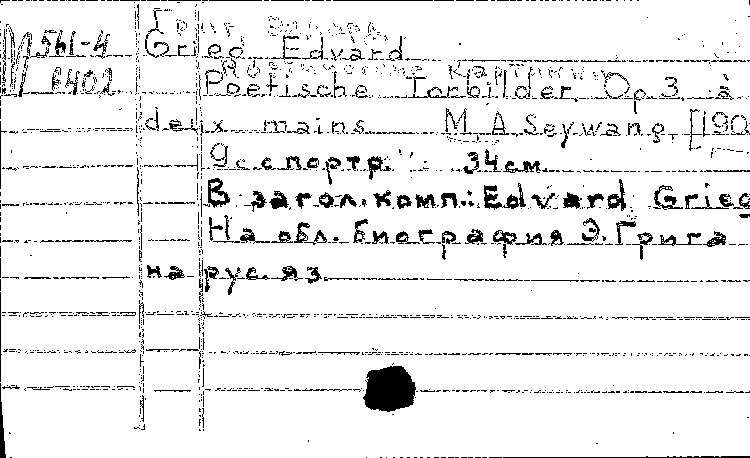 Григ Эдвард
М 561-4 Gried Edvard
Поэтические картинки
6402 Poetische Tonbilder. Op 3. à
deux mains М, А. Seywang, [190
9с. с портр. 34см.
В загол. комп.: Edvard Grieg
На обл. биография Э. Грига
на рус. яз.